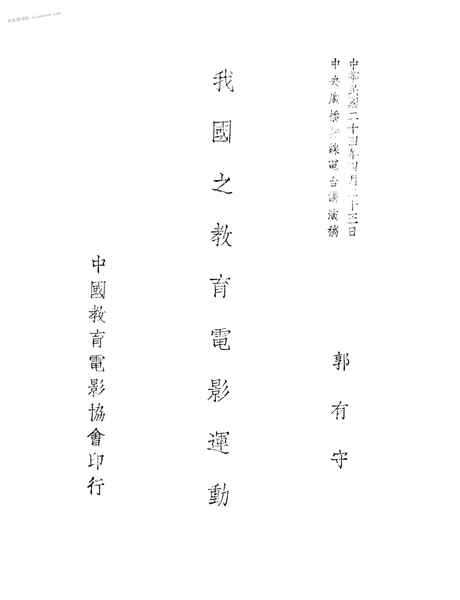 中華民國二十四年四月二十三日
中央廣播無線電台講演稿
郭有守
我國之教育電影運動
中國教育電影協會印行